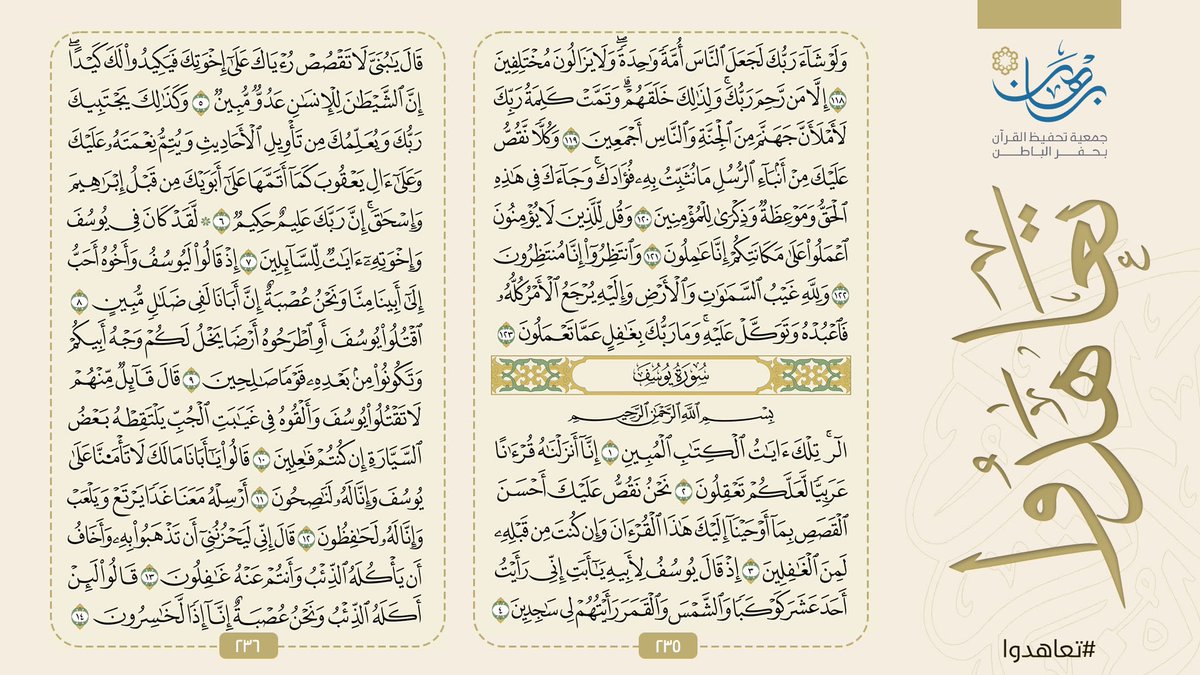 برهان
جمعية تحفيظ القرآن
بحفر الباطن
تعاهدوا
#تعاهدوا
وَلَوْ شَآءَ رَبُّكَ لَجَعَلَ ٱلنَّاسَ أُمَّةً وَٰحِدَةً ۖ وَلَا يَزَالُونَ مُخْتَلِفِينَ
١١٨ إِلَّا مَن رَّحِمَ رَبُّكَ ۚ وَلِذَٰلِكَ خَلَقَهُمْ ۗ وَتَمَّتْ كَلِمَةُ رَبِّكَ
لَأَمْلَأَنَّ جَهَنَّمَ مِنَ ٱلْجِنَّةِ وَٱلنَّاسِ أَجْمَعِينَ ١١٩ وَكُلًّا نَّقُصُّ
عَلَيْكَ مِنْ أَنۢبَآءِ ٱلرُّسُلِ مَا نُثَبِّتُ بِهِۦ فُؤَادَكَ ۚ وَجَآءَكَ فِى هَٰذِهِ
ٱلْحَقُّ وَمَوْعِظَةٌ وَذِكْرَىٰ لِلْمُؤْمِنِينَ ١٢٠ وَقُل لِّلَّذِينَ لَا يُؤْمِنُونَ
ٱعْمَلُوا۟ عَلَىٰ مَكَانَتِكُمْ إِنَّا عَٰمِلُونَ ١٢١ وَٱنتَظِرُوٓا۟ إِنَّا مُنتَظِرُونَ
١٢٢ وَلِلَّهِ غَيْبُ ٱلسَّمَٰوَٰتِ وَٱلْأَرْضِ وَإِلَيْهِ يُرْجَعُ ٱلْأَمْرُ كُلُّهُۥ
فَٱعْبُدْهُ وَتَوَكَّلْ عَلَيْهِ ۚ وَمَا رَبُّكَ بِغَٰفِلٍ عَمَّا تَعْمَلُونَ ١٢٣
سُورَةُ يُوسُفَ
بِسْمِ ٱللَّهِ ٱلرَّحْمَٰنِ ٱلرَّحِيمِ
الٓر ۚ تِلْكَ ءَايَٰتُ ٱلْكِتَٰبِ ٱلْمُبِينِ ١ إِنَّآ أَنزَلْنَٰهُ قُرْءَٰنًا
عَرَبِيًّا لَّعَلَّكُمْ تَعْقِلُونَ ٢ نَحْنُ نَقُصُّ عَلَيْكَ أَحْسَنَ
ٱلْقَصَصِ بِمَآ أَوْحَيْنَآ إِلَيْكَ هَٰذَا ٱلْقُرْءَانَ وَإِن كُنتَ مِن قَبْلِهِۦ
لَمِنَ ٱلْغَٰفِلِينَ ٣ إِذْ قَالَ يُوسُفُ لِأَبِيهِ يَٰٓأَبَتِ إِنِّى رَأَيْتُ
أَحَدَ عَشَرَ كَوْكَبًا وَٱلشَّمْسَ وَٱلْقَمَرَ رَأَيْتُهُمْ لِى سَٰجِدِينَ ٤
٢٣٥
قَالَ يَٰبُنَىَّ لَا تَقْصُصْ رُءْيَاكَ عَلَىٰٓ إِخْوَتِكَ فَيَكِيدُوا۟ لَكَ كَيْدًا ۖ
إِنَّ ٱلشَّيْطَٰنَ لِلْإِنسَٰنِ عَدُوٌّ مُّبِينٌ ٥ وَكَذَٰلِكَ يَجْتَبِيكَ
رَبُّكَ وَيُعَلِّمُكَ مِن تَأْوِيلِ ٱلْأَحَادِيثِ وَيُتِمُّ نِعْمَتَهُۥ عَلَيْكَ
وَعَلَىٰٓ ءَالِ يَعْقُوبَ كَمَآ أَتَمَّهَا عَلَىٰٓ أَبَوَيْكَ مِن قَبْلُ إِبْرَٰهِيمَ
وَإِسْحَٰقَ ۚ إِنَّ رَبَّكَ عَلِيمٌ حَكِيمٌ ٦ ۞ لَّقَدْ كَانَ فِى يُوسُفَ
وَإِخْوَتِهِۦٓ ءَايَٰتٌ لِّلسَّآئِلِينَ ٧ إِذْ قَالُوا۟ لَيُوسُفُ وَأَخُوهُ أَحَبُّ
إِلَىٰٓ أَبِينَا مِنَّا وَنَحْنُ عُصْبَةٌ إِنَّ أَبَانَا لَفِى ضَلَٰلٍ مُّبِينٍ ٨
ٱقْتُلُوا۟ يُوسُفَ أَوِ ٱطْرَحُوهُ أَرْضًا يَخْلُ لَكُمْ وَجْهُ أَبِيكُمْ
وَتَكُونُوا۟ مِنۢ بَعْدِهِۦ قَوْمًا صَٰلِحِينَ ٩ قَالَ قَآئِلٌ مِّنْهُمْ
لَا تَقْتُلُوا۟ يُوسُفَ وَأَلْقُوهُ فِى غَيَٰبَتِ ٱلْجُبِّ يَلْتَقِطْهُ بَعْضُ
ٱلسَّيَّارَةِ إِن كُنتُمْ فَٰعِلِينَ ١٠ قَالُوا۟ يَٰٓأَبَانَا مَا لَكَ لَا تَأْمَ۫نَّا عَلَىٰ
يُوسُفَ وَإِنَّا لَهُۥ لَنَٰصِحُونَ ١١ أَرْسِلْهُ مَعَنَا غَدًا يَرْتَعْ وَيَلْعَبْ
وَإِنَّا لَهُۥ لَحَٰفِظُونَ ١٢ قَالَ إِنِّى لَيَحْزُنُنِىٓ أَن تَذْهَبُوا۟ بِهِۦ وَأَخَافُ
أَن يَأْكُلَهُ ٱلذِّئْبُ وَأَنتُمْ عَنْهُ غَٰفِلُونَ ١٣ قَالُوا۟ لَئِنْ
أَكَلَهُ ٱلذِّئْبُ وَنَحْنُ عُصْبَةٌ إِنَّآ إِذًا لَّخَٰسِرُونَ ١٤
٢٣٦